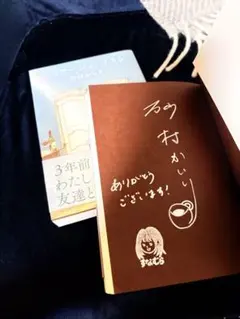 3年前
わたし
友達と
砂村かいり
ありがとう
ございます!
すなむら